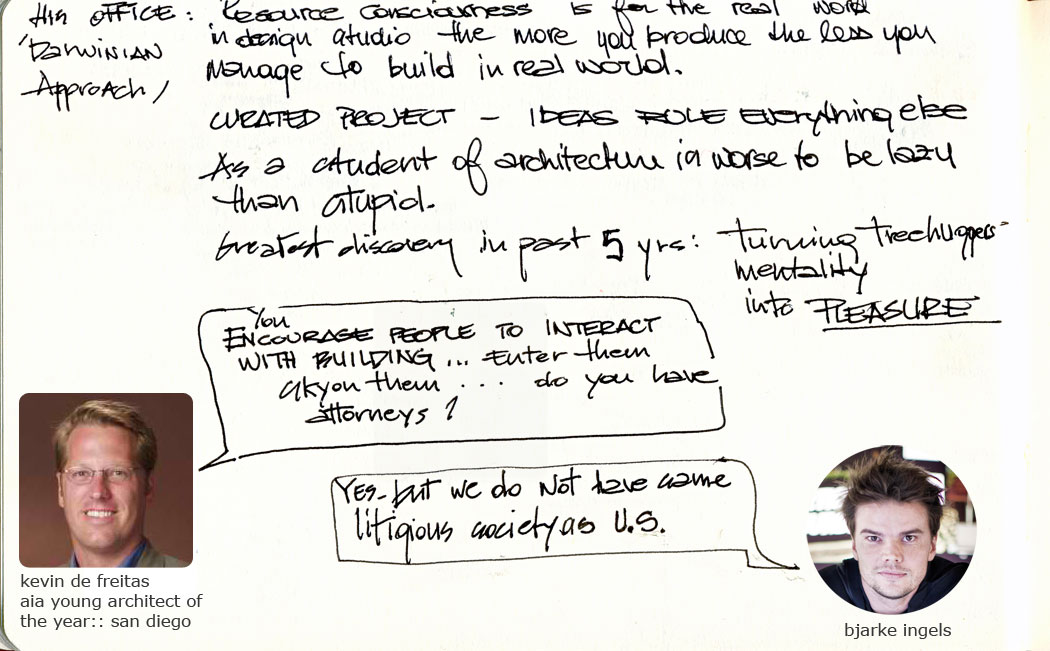 His OFFICE: Resource consciousness is for the real world
'DARWINIAN in design studio the more you produce the less you
Approach/ manage to build in real world.
CURATED PROJECT - IDEAS RULE EVERYthing else
As a student of architecture is worse to be lazy
than stupid.
Greatest discovery in past 5 yrs: turning treehuggers-
mentality
into PLEASURE
You
ENCOURAGE PEOPLE TO INTERACT
WITH BUILDING ... Enter them
on them ... do you have
attorneys?
Yes-but we do Not have same
litigious society as U.S.
kevin de freitas
aia young architect of
the year:: san diego
bjarke ingels